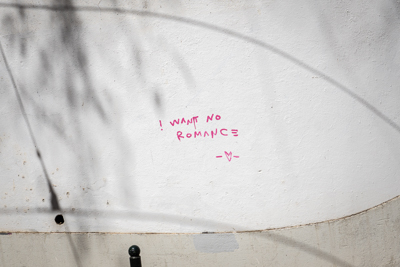 I WANT NO
ROMANCE